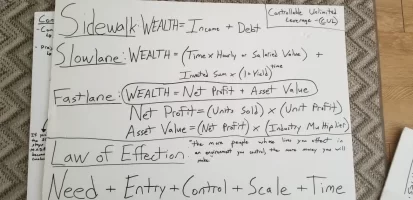 Sidewalk: WEALTH = Income + Debt
Controllable Unlimited
Leverage - (CUL)
Slowlane: WEALTH = (Time x Hourly or Salaried Value) +
Invested Sum x (1 + Yield)^time
Fastlane: WEALTH = Net Profit + Asset Value
Net Profit = (Units Sold) x (Unit Profit)
Asset Value = (Net Profit) x (Industry Multiplier)
Law of Effection - "the more people whose lives you affect in
an environment you control, the more money you will
make."
Need + Entry + Control + Scale + Time